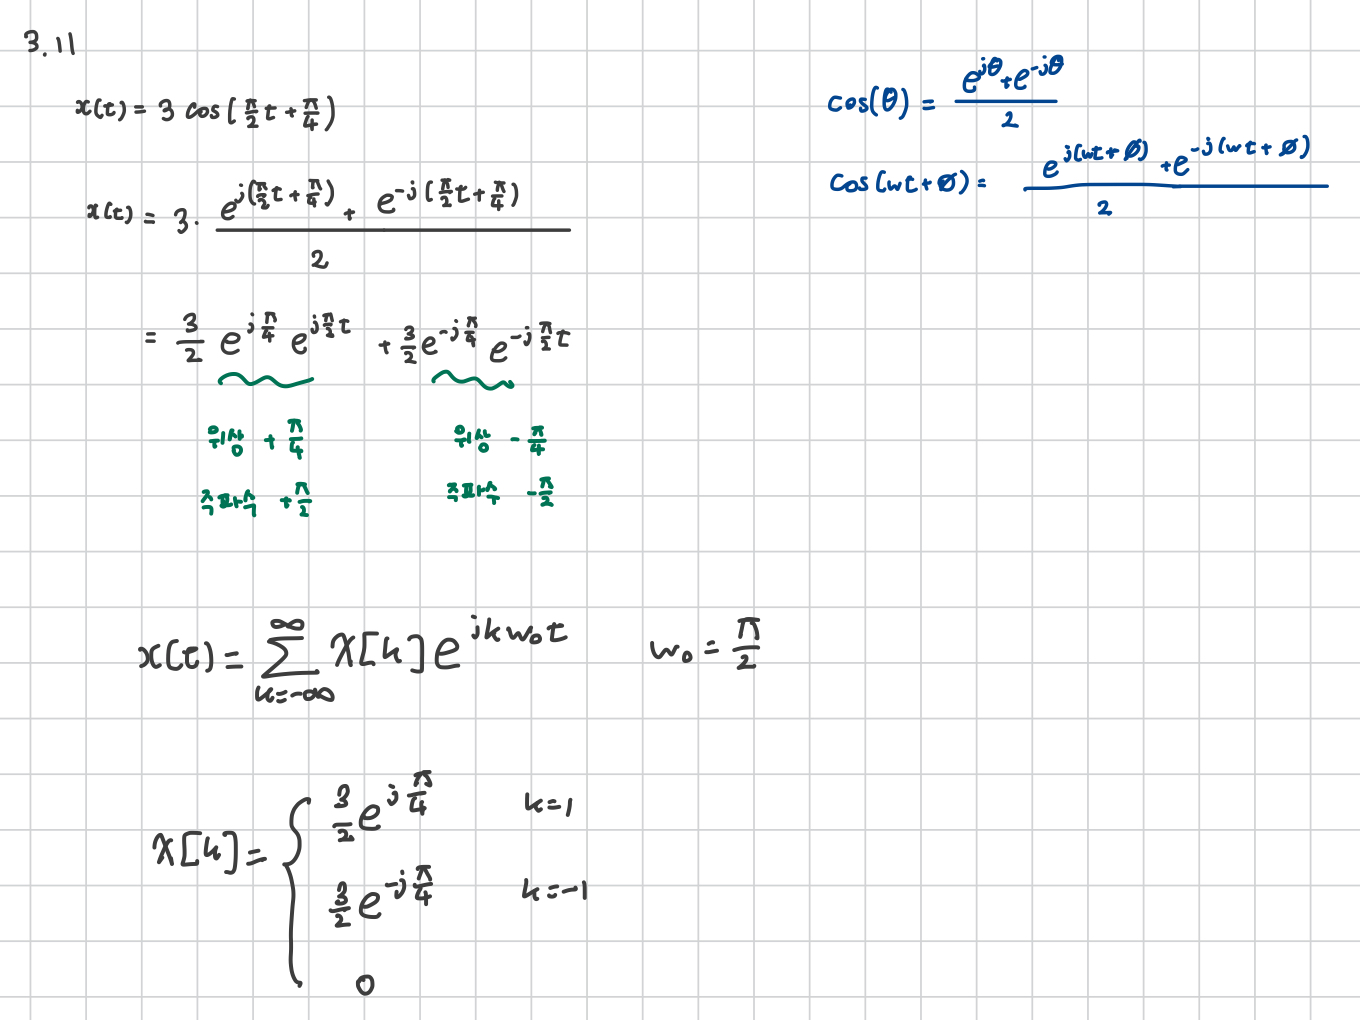 3.11
x(t) = 3 cos(π/2 t + π/4)
x(t) = 3 · (e^{j(π/2 t + π/4)} + e^{-j(π/2 t + π/4)}) / 2
= 3/2 e^{jπ/4} e^{jπ/2 t} + 3/2 e^{-jπ/4} e^{-jπ/2 t}
위상 + π/4 위상 - π/4
주파수 + π/2 주파수 - π/2
cos(θ) = (e^{jθ} + e^{-jθ}) / 2
cos(wt + ø) = (e^{j(wt + ø)} + e^{-j(wt + ø)}) / 2
x(t) = ∑_{k=-∞}^{∞} X[k] e^{jkw₀t} w₀ = π/2
X[k] = { 3/2 e^{jπ/4} k=1
3/2 e^{-jπ/4} k=-1
0